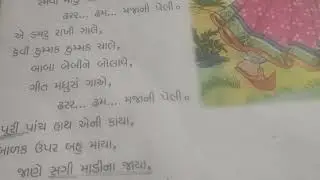 ઢરર... ઢમ... મજાની પેલી૦
એ ડમરુ રાખી ગાલે,
કેવી ઠુમ્મક ઠુમ્મક ચાલે,
બાબા બેબીને બોલાવે,
ગીત મધુરાં ગાએ,
ઢરર... ઢમ... મજાની પેલી૦
પૂરી પાંચ હાથ એની કાયા,
બાળક ઉપર બહુ માયા,
જાણે સગી માડીના જાયા,